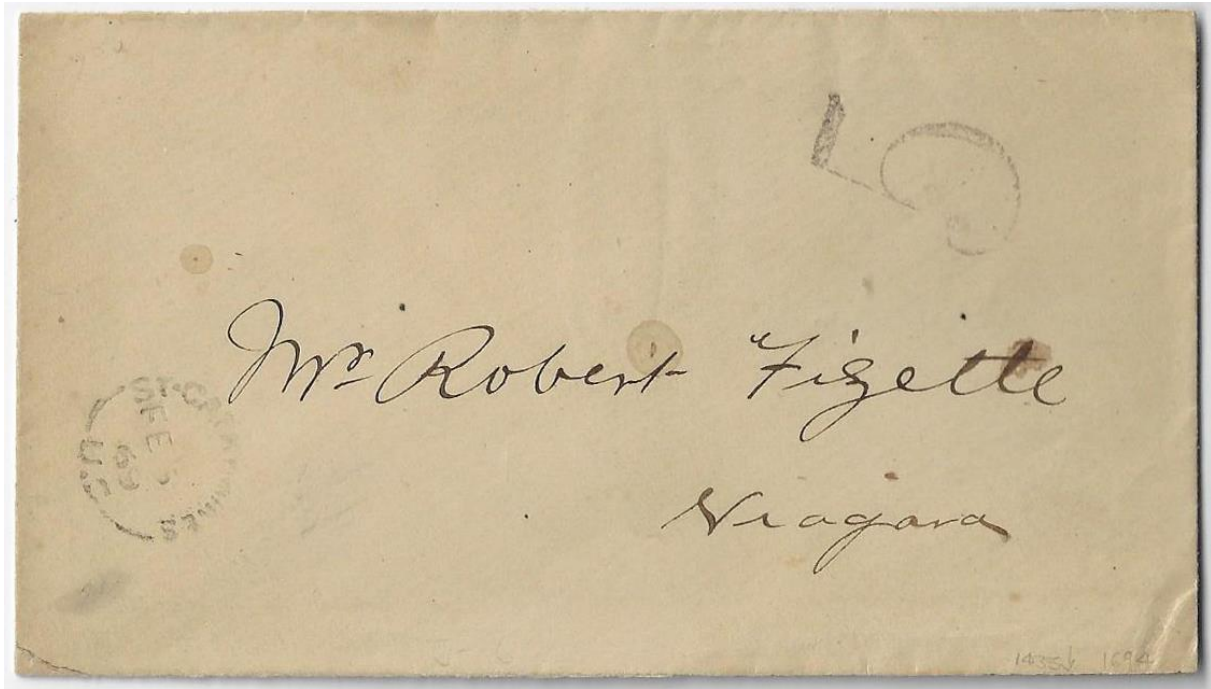 5
Mr. Robert Fizette
Niagara
ST. CATHARINES
FE
69
U.C
1694